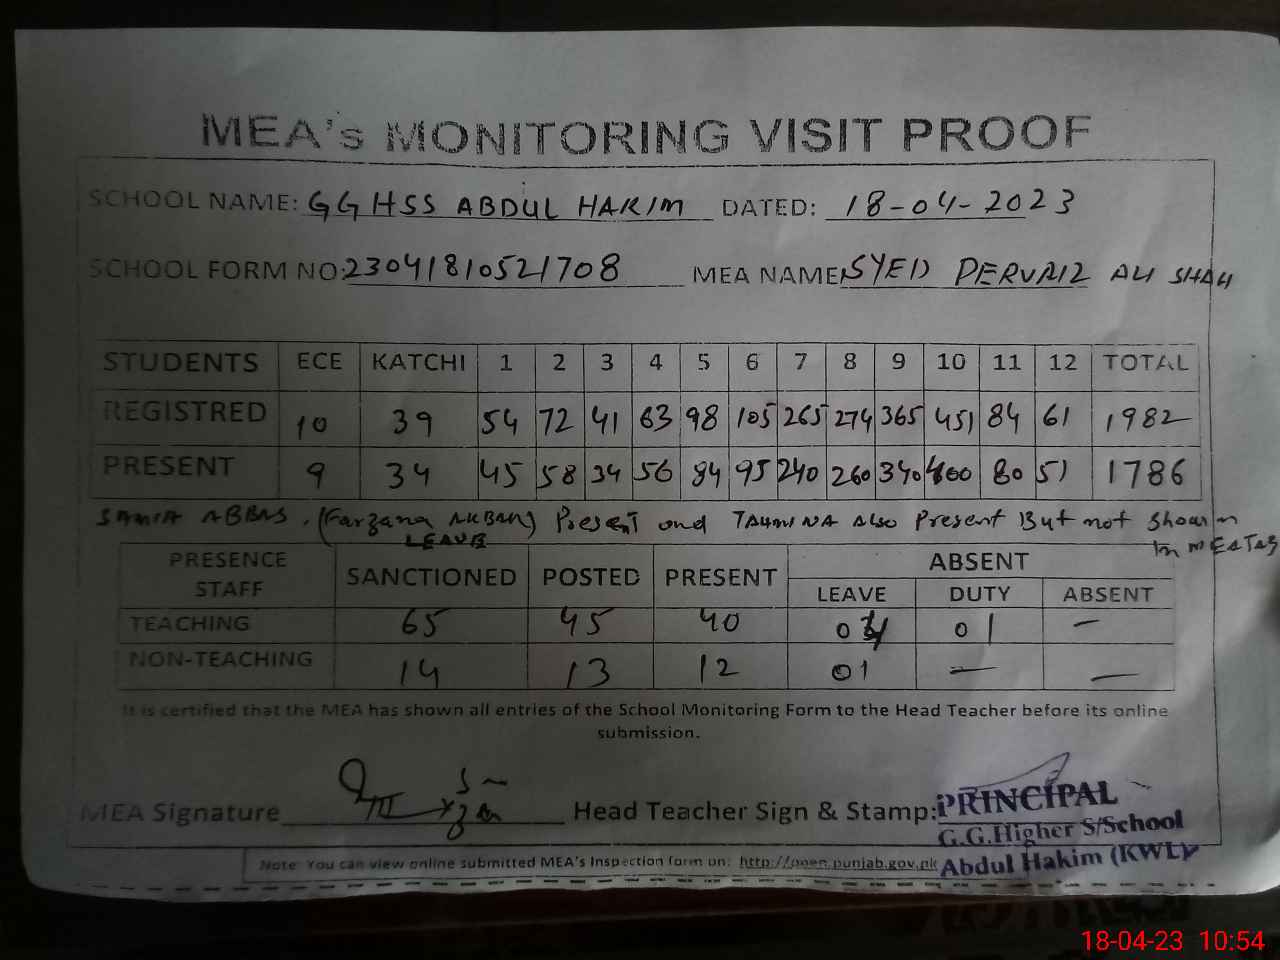 MEA's MONITORING VISIT PROOF
SCHOOL NAME: GGHSS ABDUL HAKIM DATED: 18-04-2023
SCHOOL FORM NO: 23041810521708 MEA NAME: SYED PERVAIZ ALI SHAH
STUDENTS ECE KATCHI 1 2 3 4 5 6 7 8 9 10 11 12 TOTAL
REGISTRED 10 39 54 72 41 63 98 105 265 274 365 451 84 61 1982
PRESENT 9 34 45 58 34 56 84 95 240 260 340 400 80 51 1786
SAMIA ABBAS, (Farzana AKBAR) Present and TAHMINA Also Present But not Shown
LEAVE in MEATAB
PRESENCE STAFF SANCTIONED POSTED PRESENT ABSENT
LEAVE DUTY ABSENT
TEACHING 65 45 40 04 01 —
NON-TEACHING 14 13 12 01 — —
It is certified that the MEA has shown all entries of the School Monitoring Form to the Head Teacher before its online
submission.
MEA Signature Head Teacher Sign & Stamp: PRINCIPAL
G.G.Higher S/School
Abdul Hakim (KWL)
Note: You can view online submitted MEA's Inspection form on: http://open.punjab.gov.pk
18-04-23 10:54